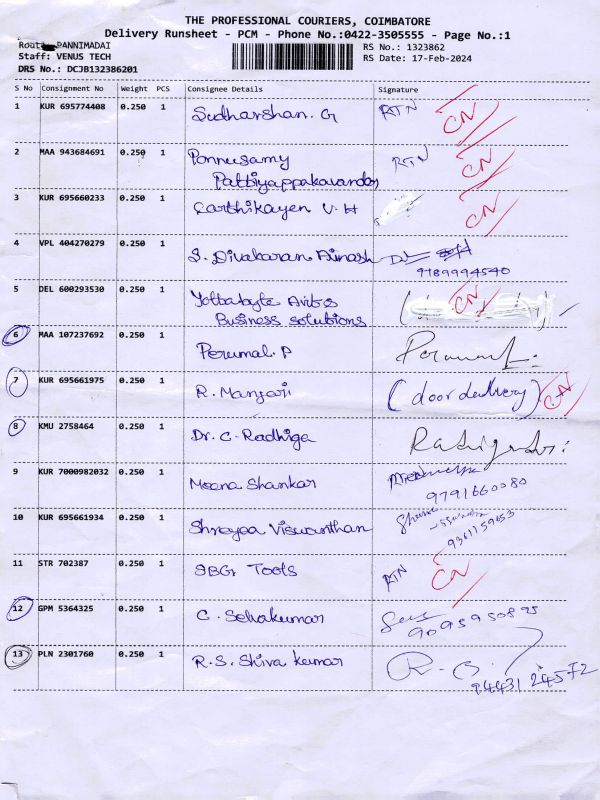 THE PROFESSIONAL COURIERS, COIMBATORE
Delivery Runsheet - PCM - Phone No.:0422-3505555 - Page No.:1
Route: PANNIMADAI
RS No.: 1323862
Staff: VENUS TECH
RS Date: 17-Feb-2024
DRS No.: DCJB132386201
S No Consignment No Weight PCS Consignee Details Signature
1 KUR 695774408 0.250 1 Sudharshan. G RTN CN
2 MAA 943684691 0.250 1 Ponnusamy RTN CN
Pattiyappakavandar
3 KUR 695660233 0.250 1 Carthikayen V. H CN
4 VPL 404270279 0.250 1 S. Divakaran
9789994540
5 DEL 600293530 0.250 1 CN
Business solutions
6 MAA 107237692 0.250 1 Perumal. P
7 KUR 695661975 0.250 1 R. Manjari (door delivery) CN
8 KMU 2758464 0.250 1 Dr. C. Radhiga
9 KUR 7000982032 0.250 1 Meena Shankar
9791660080
10 KUR 695661934 0.250 1 Shreyaa Viswanthan
11 STR 702387 0.250 1 Tools RTN CN
12 GPM 5364325 0.250 1 C. Selvakumar
9095950895
13 PLN 2301760 0.250 1 R. S. Shiva kumar
94431 24572